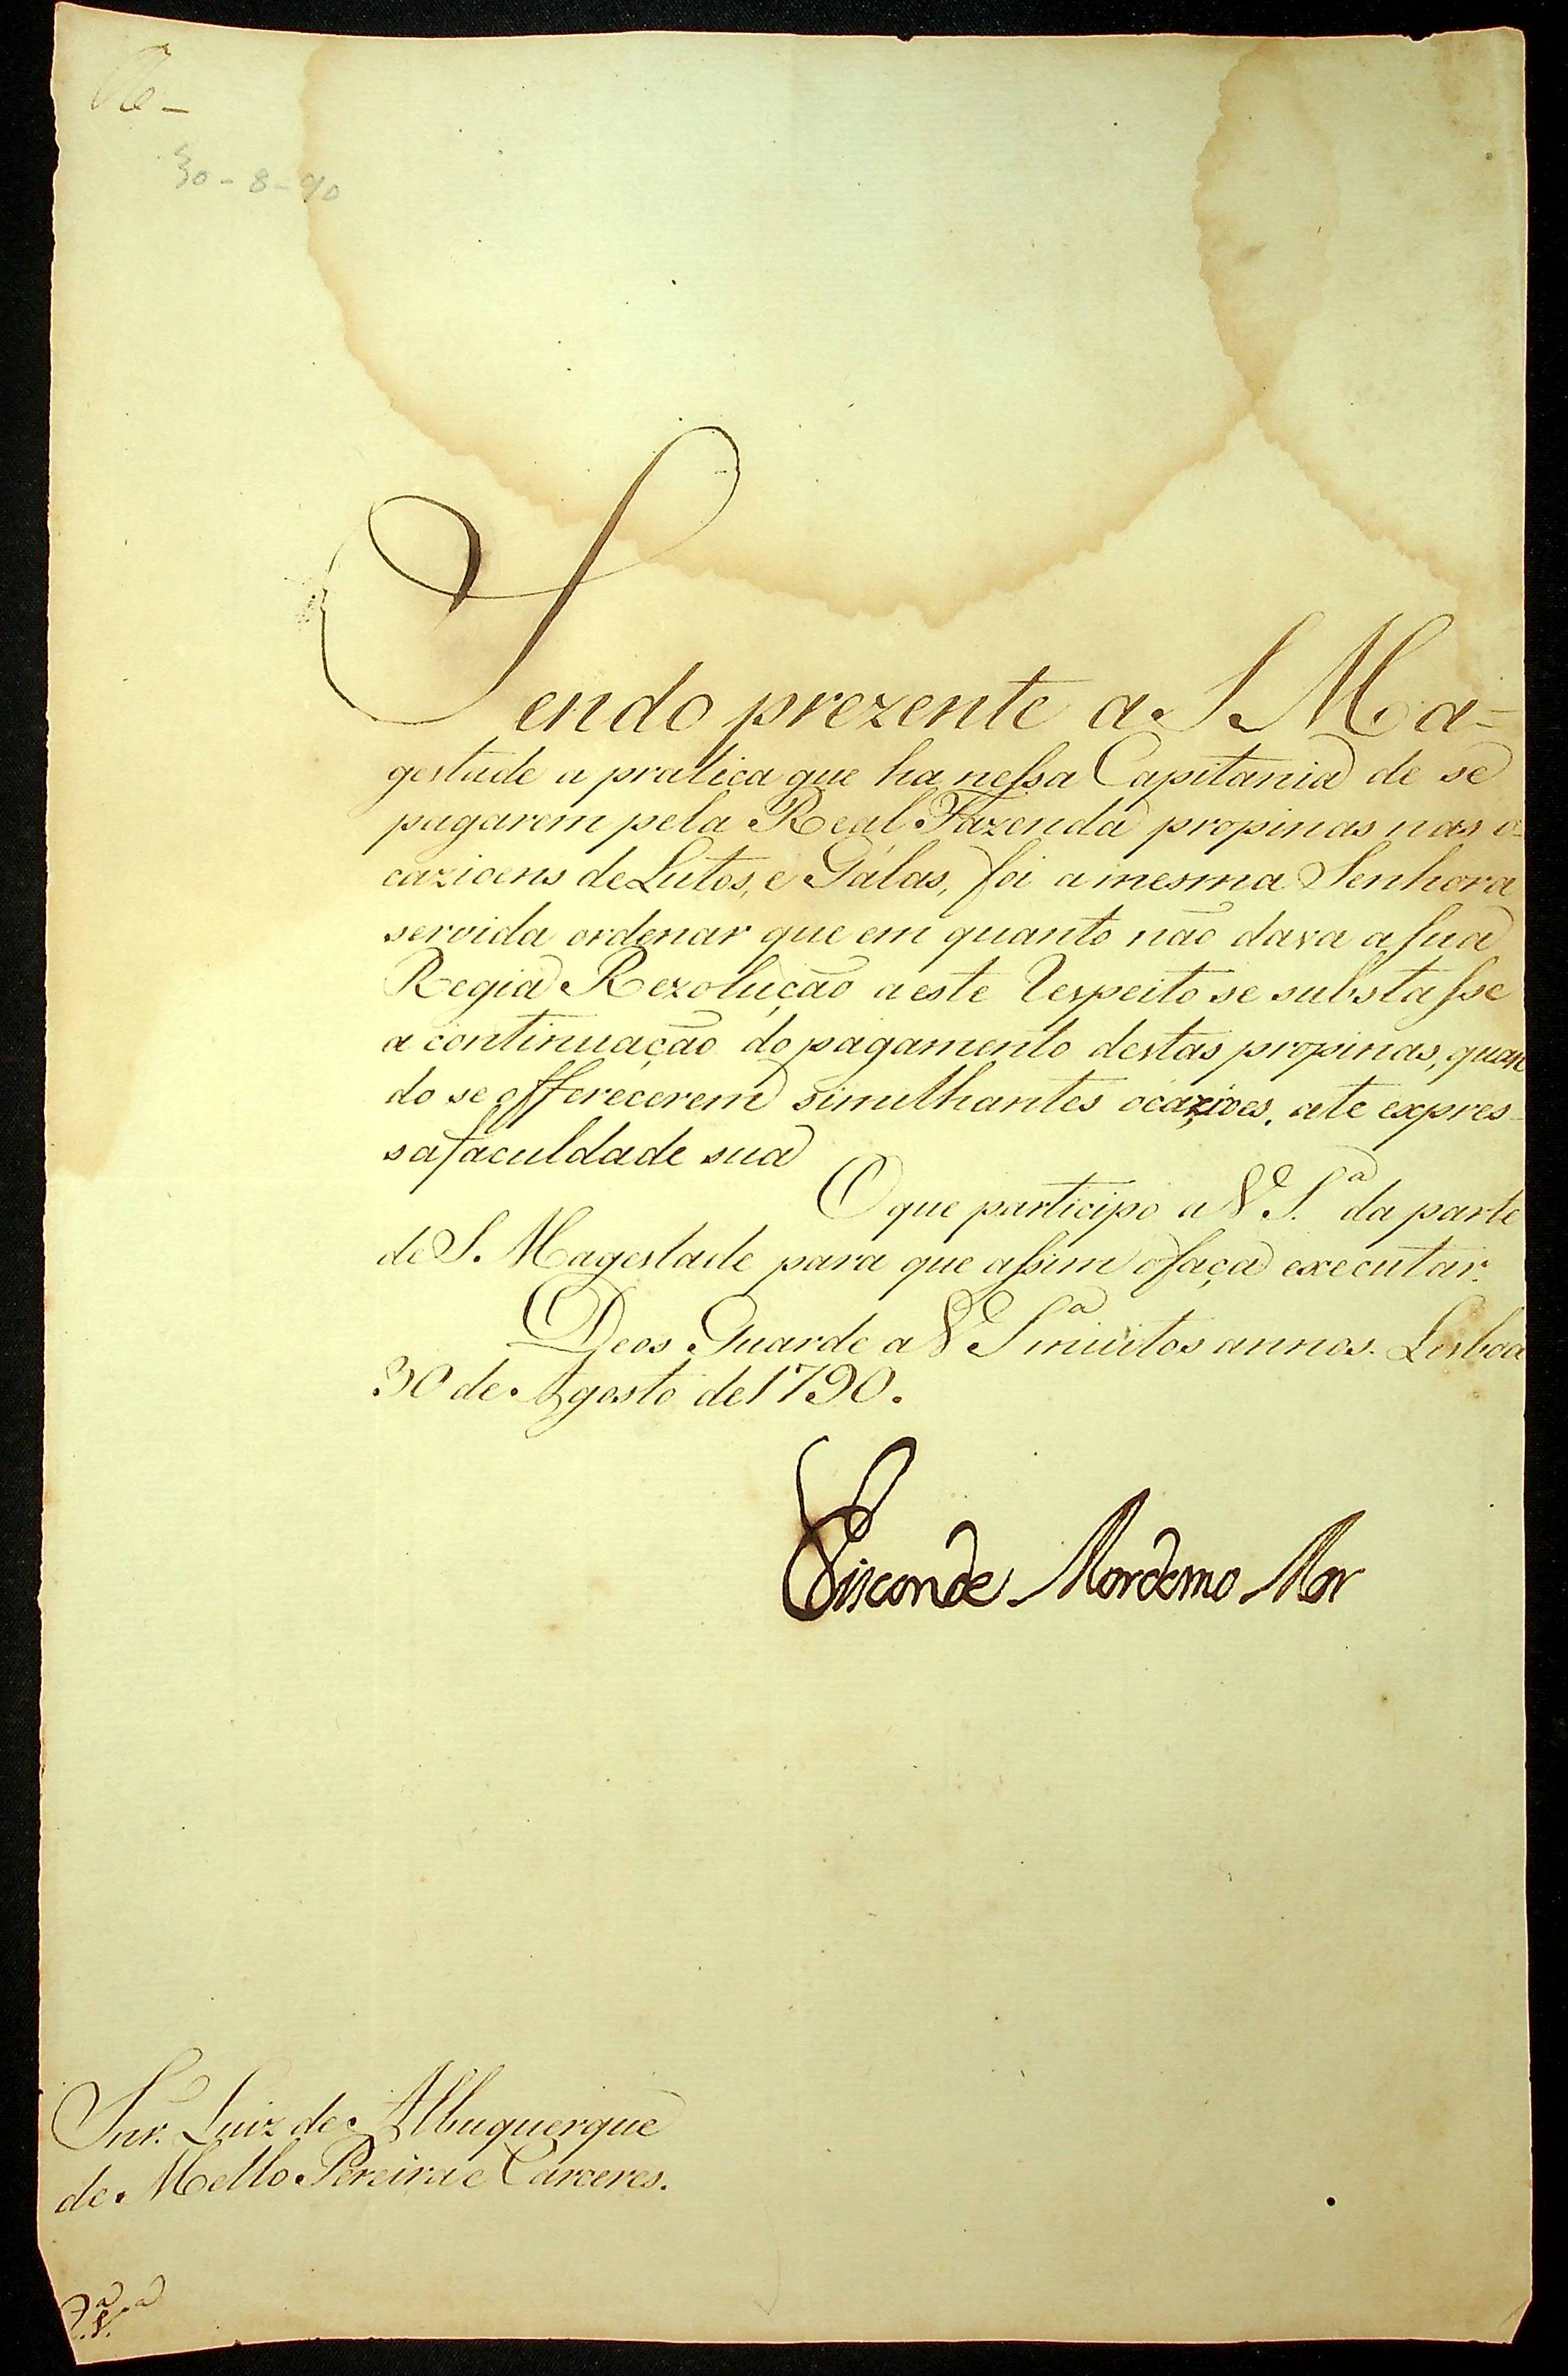 30-8-90
Sendo prezente a S. Ma=
gestade a pratica que ha nessa Capitania de se
pagarem pela Real Fazenda propinas nas o-
cazioens de Lutos, e Gálas, foi a mesma Senhora
servida ordenar que em quanto não dava a sua
Regia Rezolução a este respeito se substasse
a continuação do pagamento destas propinas, quan
do se offerecerem similhantes ocaziões, ate expres-
sa faculdade sua
O que participo a V. S.ª da parte
de S. Magestade para que assim o faça executar.
Deos Guarde a V. S.ª muitos annos. Lisboa
30 de Agosto de 1790.
Visconde Mordomo Mor
Snr. Luiz de Albuquerque
de Mello Pereira e Carceres.